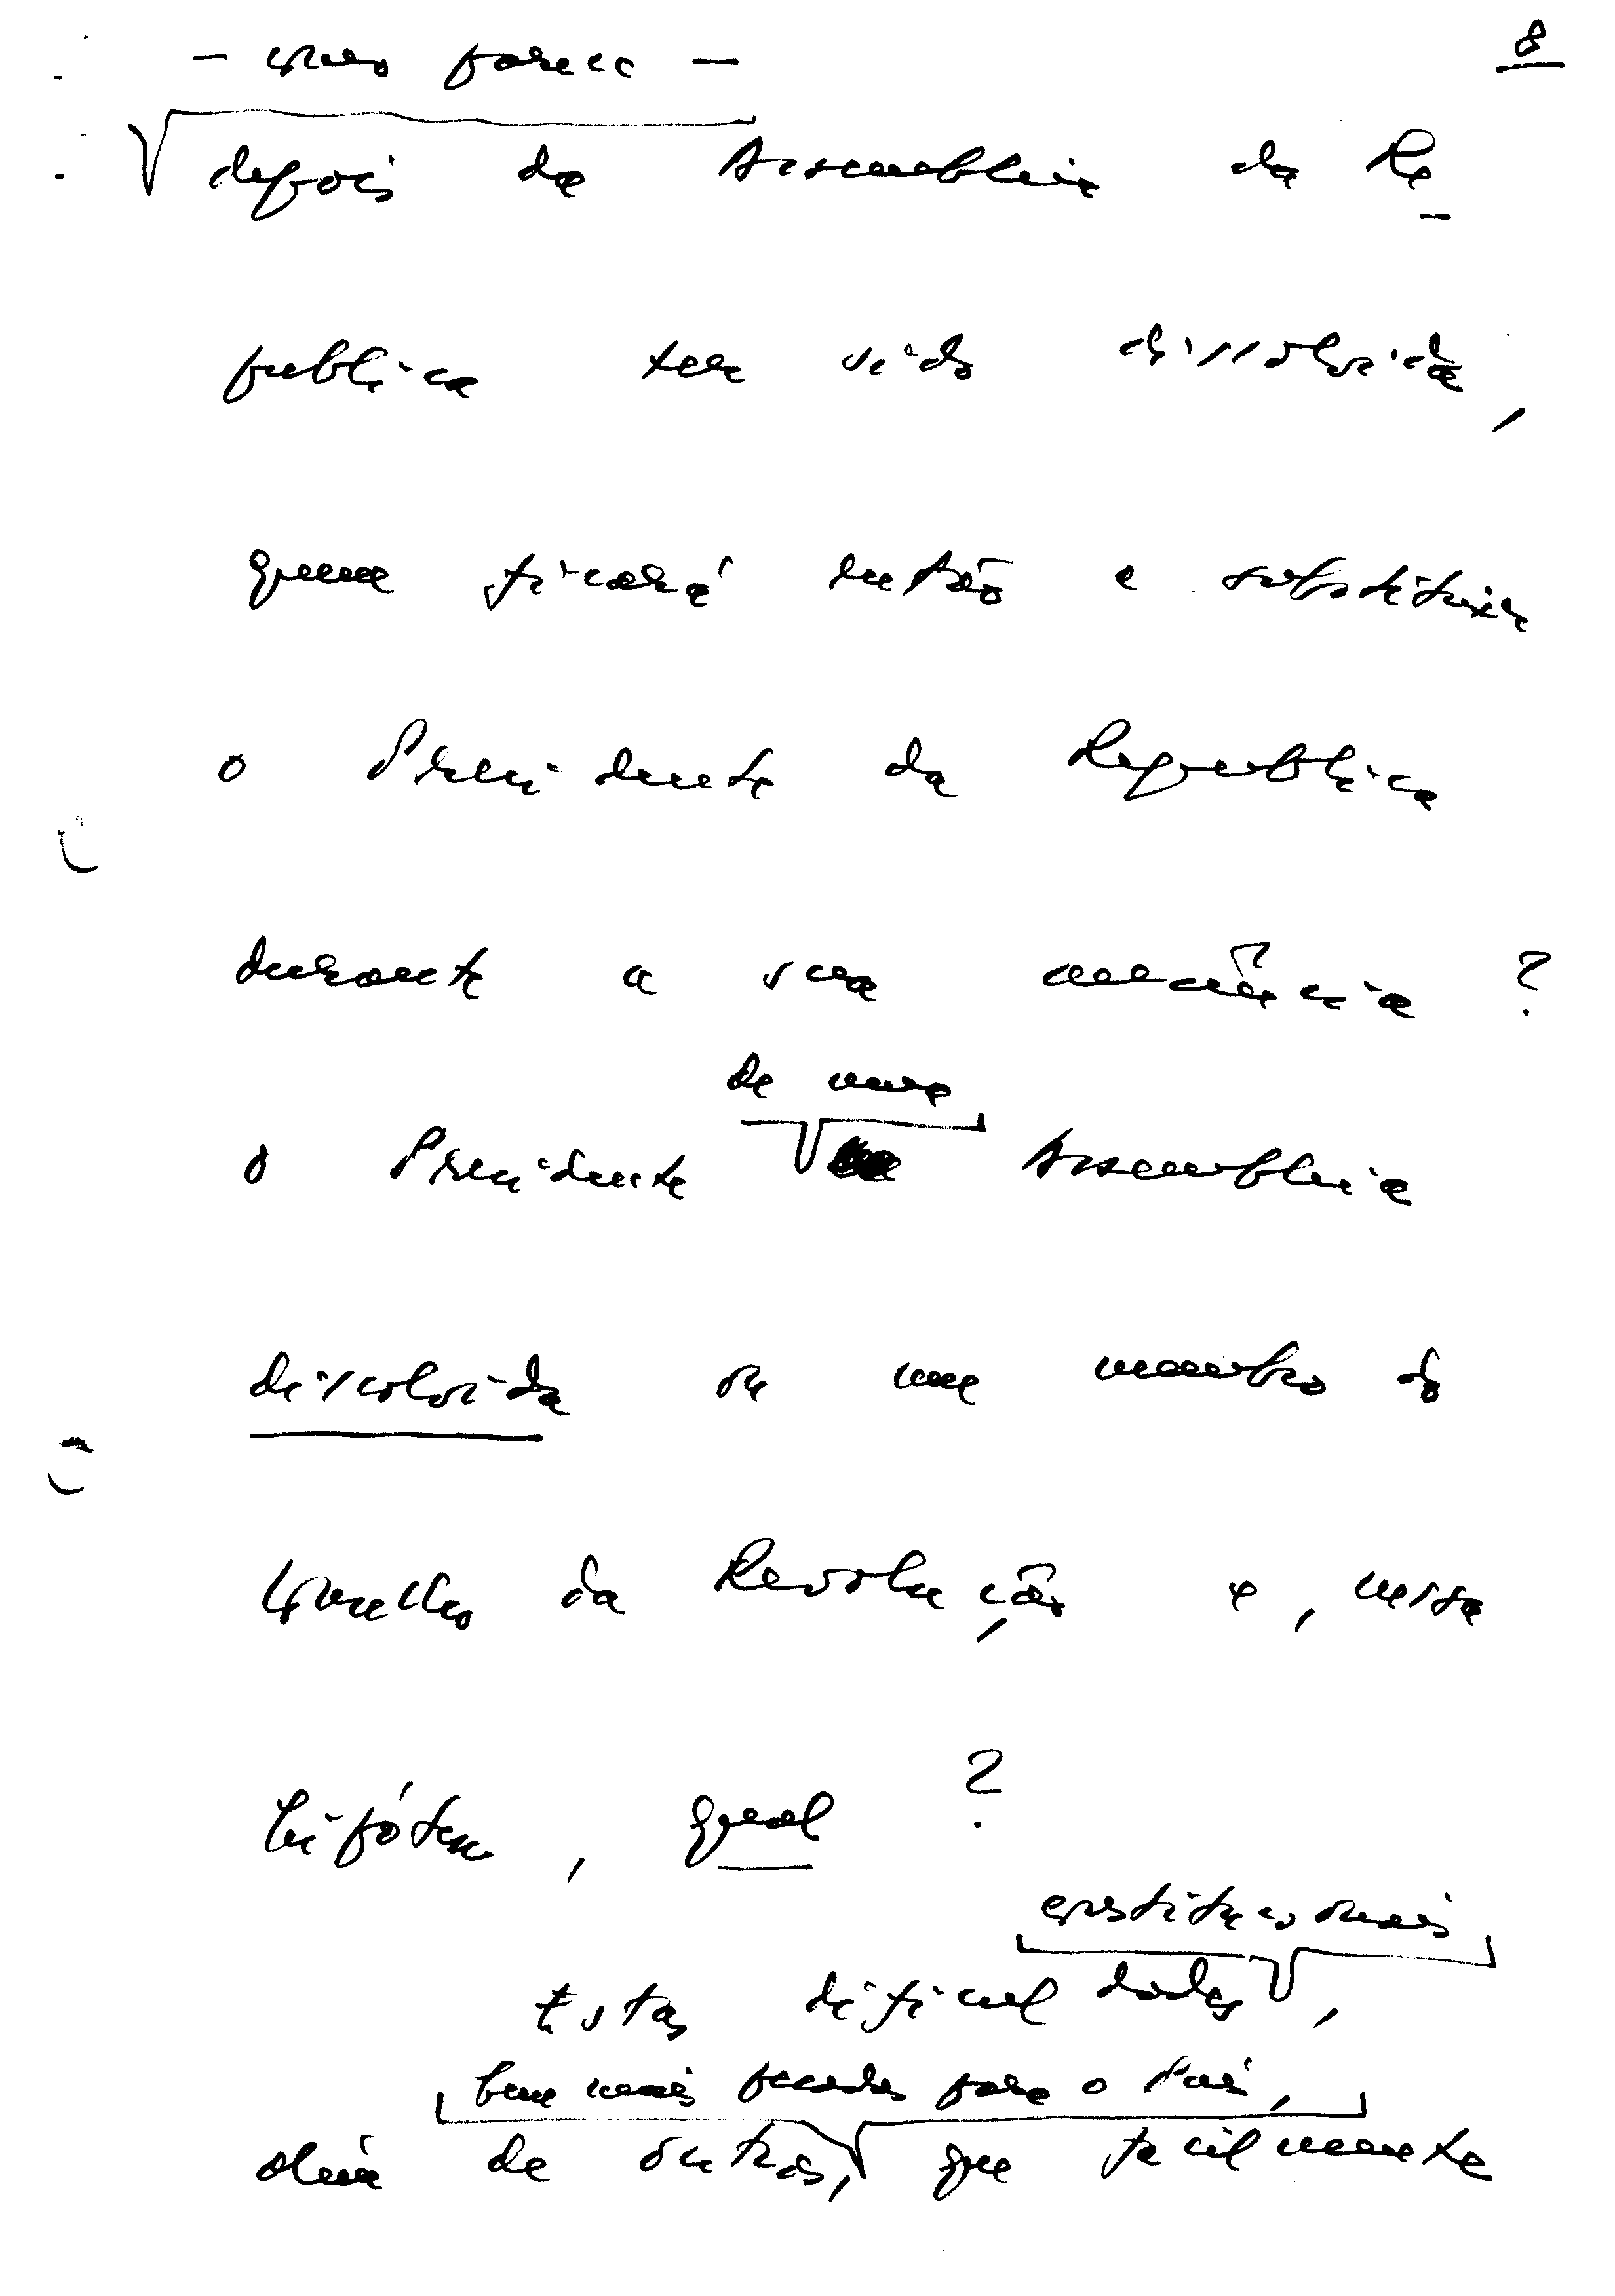 8
depois da Assembleia da Re-
publica ter sido dissolvida,
quem ficará então a substituir
o Presidente da Republica
durante a sua ausência ?
de uma
o Presidente Assembleia
dissolvida ou um membro do
Conselho da Revolução e, nessa
hipótese, qual ?
constitucionais
Estas dificuldades,
bem mais pesadas para o País,
além de outras, que facilmente